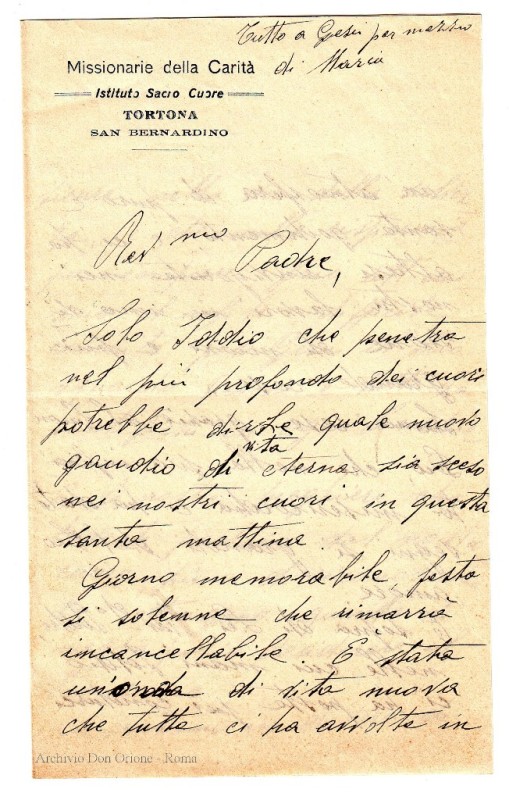 Tutto a Gesù per mezzo
di Maria
Missionarie della Carità
Istituto Sacro Cuore
TORTONA
SAN BERNARDINO
Rev mo
Padre,
Solo Iddio che penetra
nel più profondo dei cuori
potrebbe dirLe quale nuovo
gaudio di vita eterna sia sceso
nei nostri cuori in questa
santa mattina
Giorno memorabile, festa
sì solenne che rimarrà
incancellabile. È stata
un'onda di vita nuova
che tutte ci ha avvolte in
Archivio Don Orione - Roma